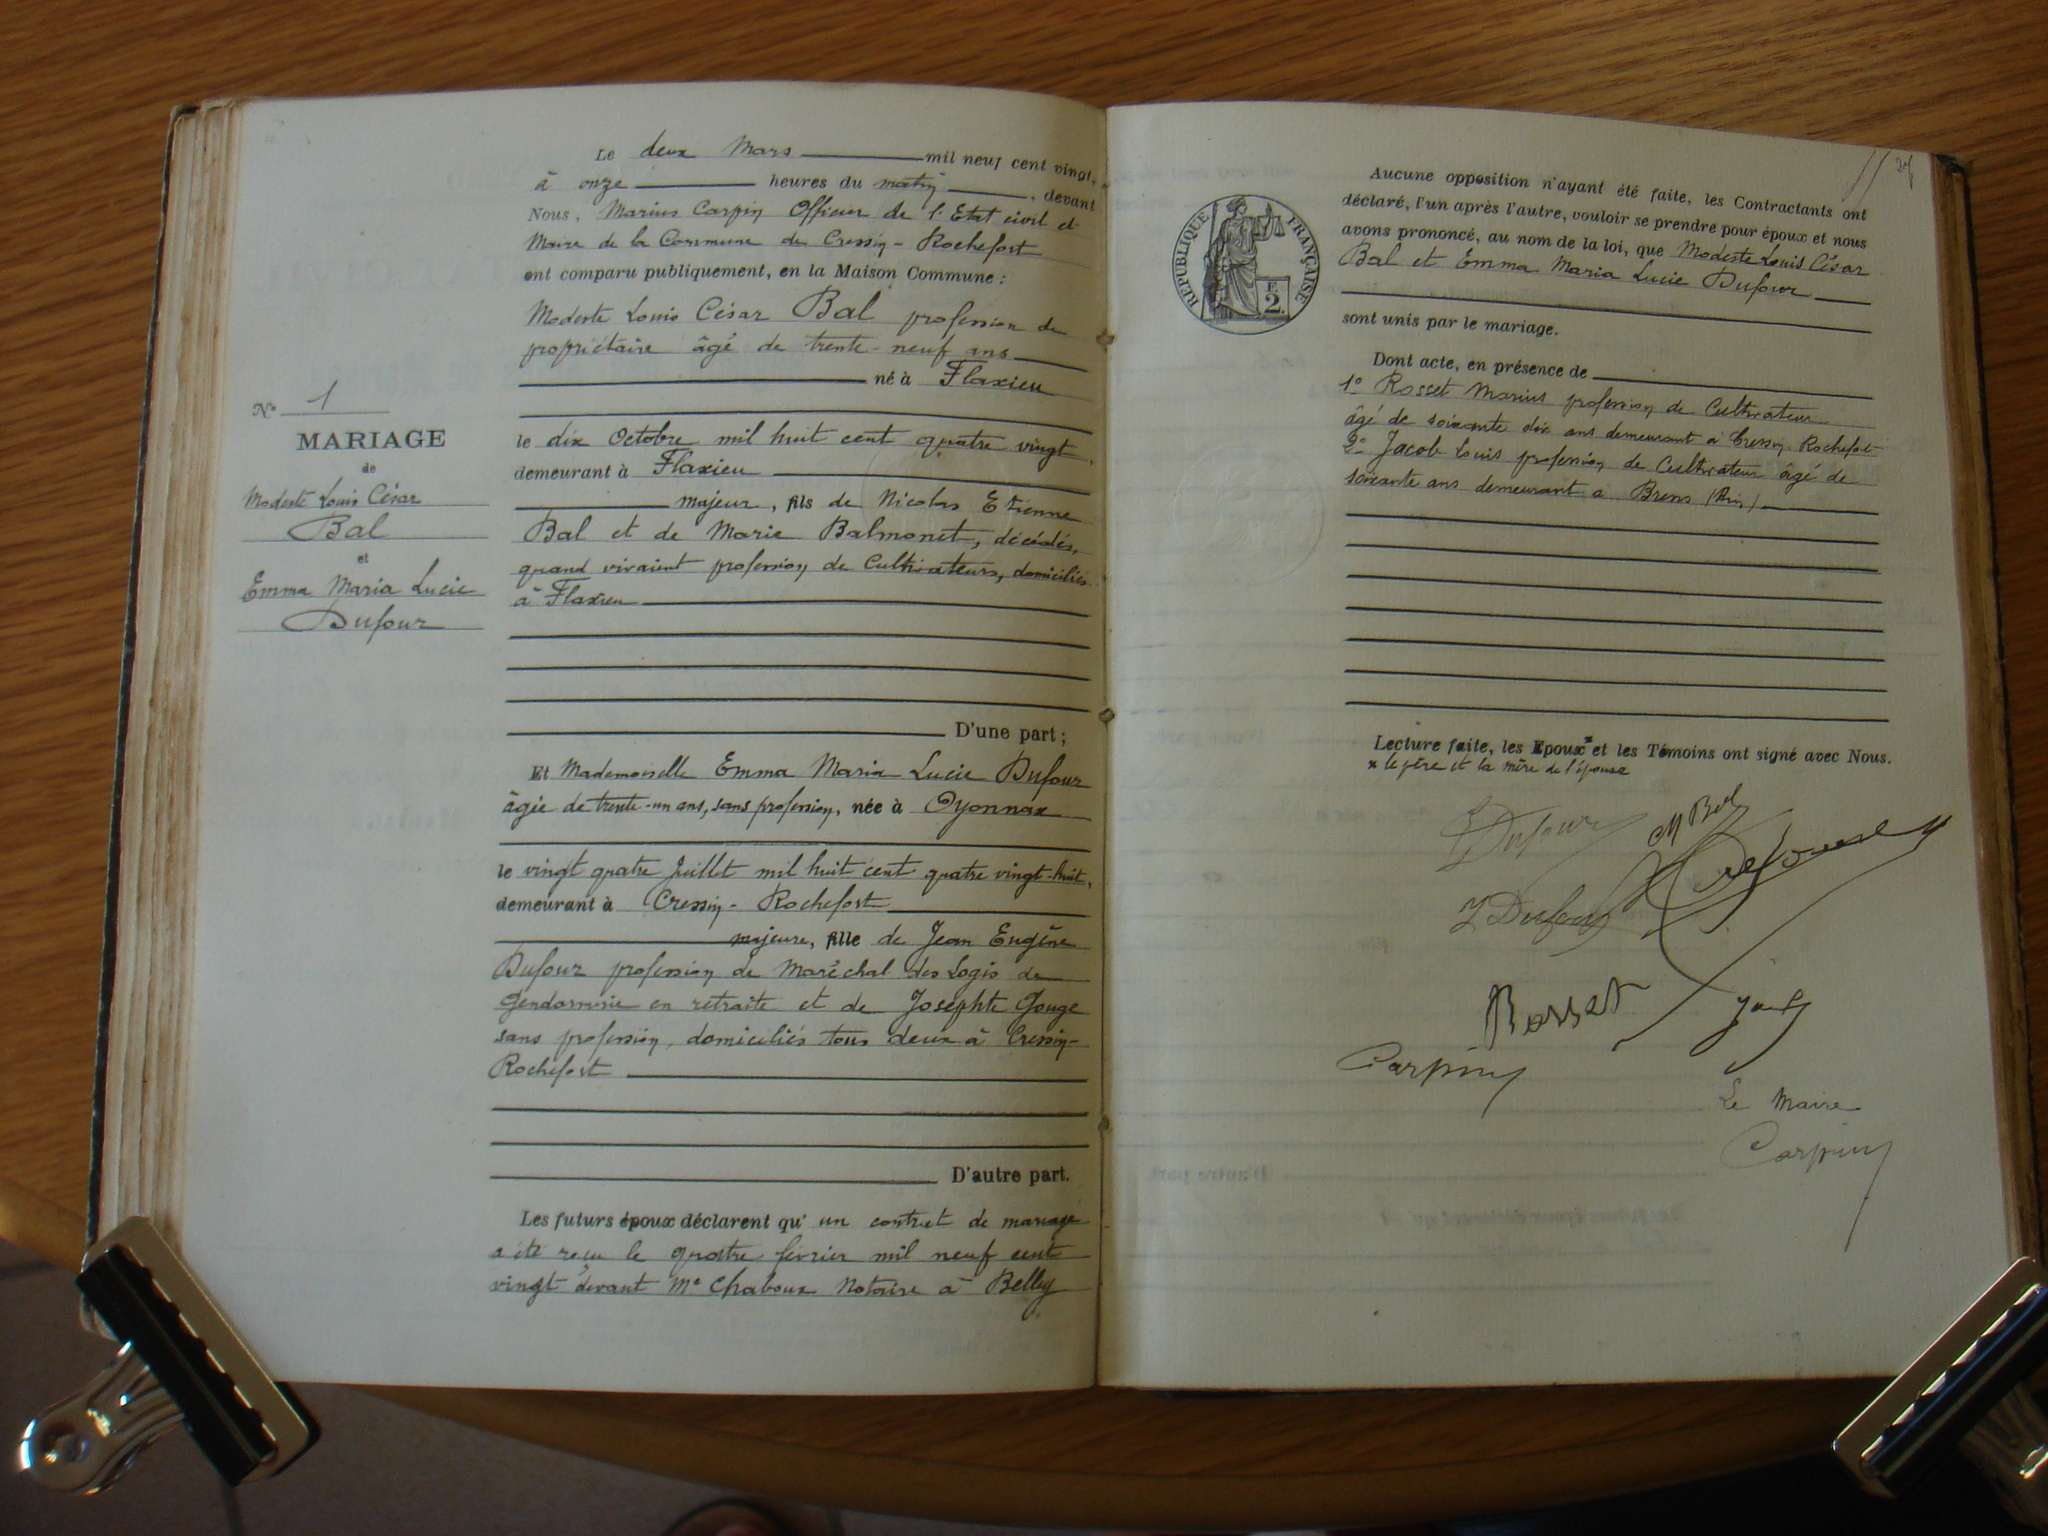 Le deux Mars mil neuf cent vingt,
à onze heures du matin, devant
Nous, Marius Carpin Officier de l'Etat civil et
Maire de la Commune de Cressin-Rochefort
ont comparu publiquement, en la Maison Commune :
Modeste Louis César Bal profession de
propriétaire âgé de trente-neuf ans
né à Flaxieu
le dix Octobre mil huit cent quatre vingt,
demeurant à Flaxieu
majeur, fils de Nicolas Etienne
Bal et de Marie Balmonet, décédés,
quand vivaient profession de Cultivateurs, domiciliés
à Flaxieu
D'une part ;
Et Mademoiselle Emma Maria Lucie Dufour
âgée de trente-un ans, sans profession, née à Oyonnax
le vingt quatre Juillet mil huit cent quatre vingt-huit,
demeurant à Cressin-Rochefort
majeure, fille de Jean Eugène
Dufour profession de Maréchal des Logis de
Gendarmerie en retraite et de Josephte Gouge
sans profession, domiciliés tous deux à Cressin-
Rochefort
D'autre part.
Les futurs époux déclarent qu'un contrat de mariage
a été reçu le quatre février mil neuf cent
vingt devant Me Chaboux Notaire à Belley
No 1
MARIAGE
de
Modeste Louis César
Bal
et
Emma Maria Lucie
Dufour
Aucune opposition n'ayant été faite, les Contractants ont
déclaré, l'un après l'autre, vouloir se prendre pour époux et nous
avons prononcé, au nom de la loi, que Modeste Louis César
Bal et Emma Maria Lucie Dufour
sont unis par le mariage.
RÉPUBLIQUE FRANÇAISE
F
2.
Dont acte, en présence de
1° Rosset Marius profession de Cultivateur
âgé de soixante dix ans demeurant à Cressin-Rochefort
2° Jacob Louis profession de Cultivateur âgé de
soixante ans demeurant à Brens (Ain)
Lecture faite, les Epoux x et les Témoins ont signé avec Nous.
x le père et la mère de l'épouse
Dufour
M Bal
Dufour
Rosset
Carpin
Le Maire
Carpin